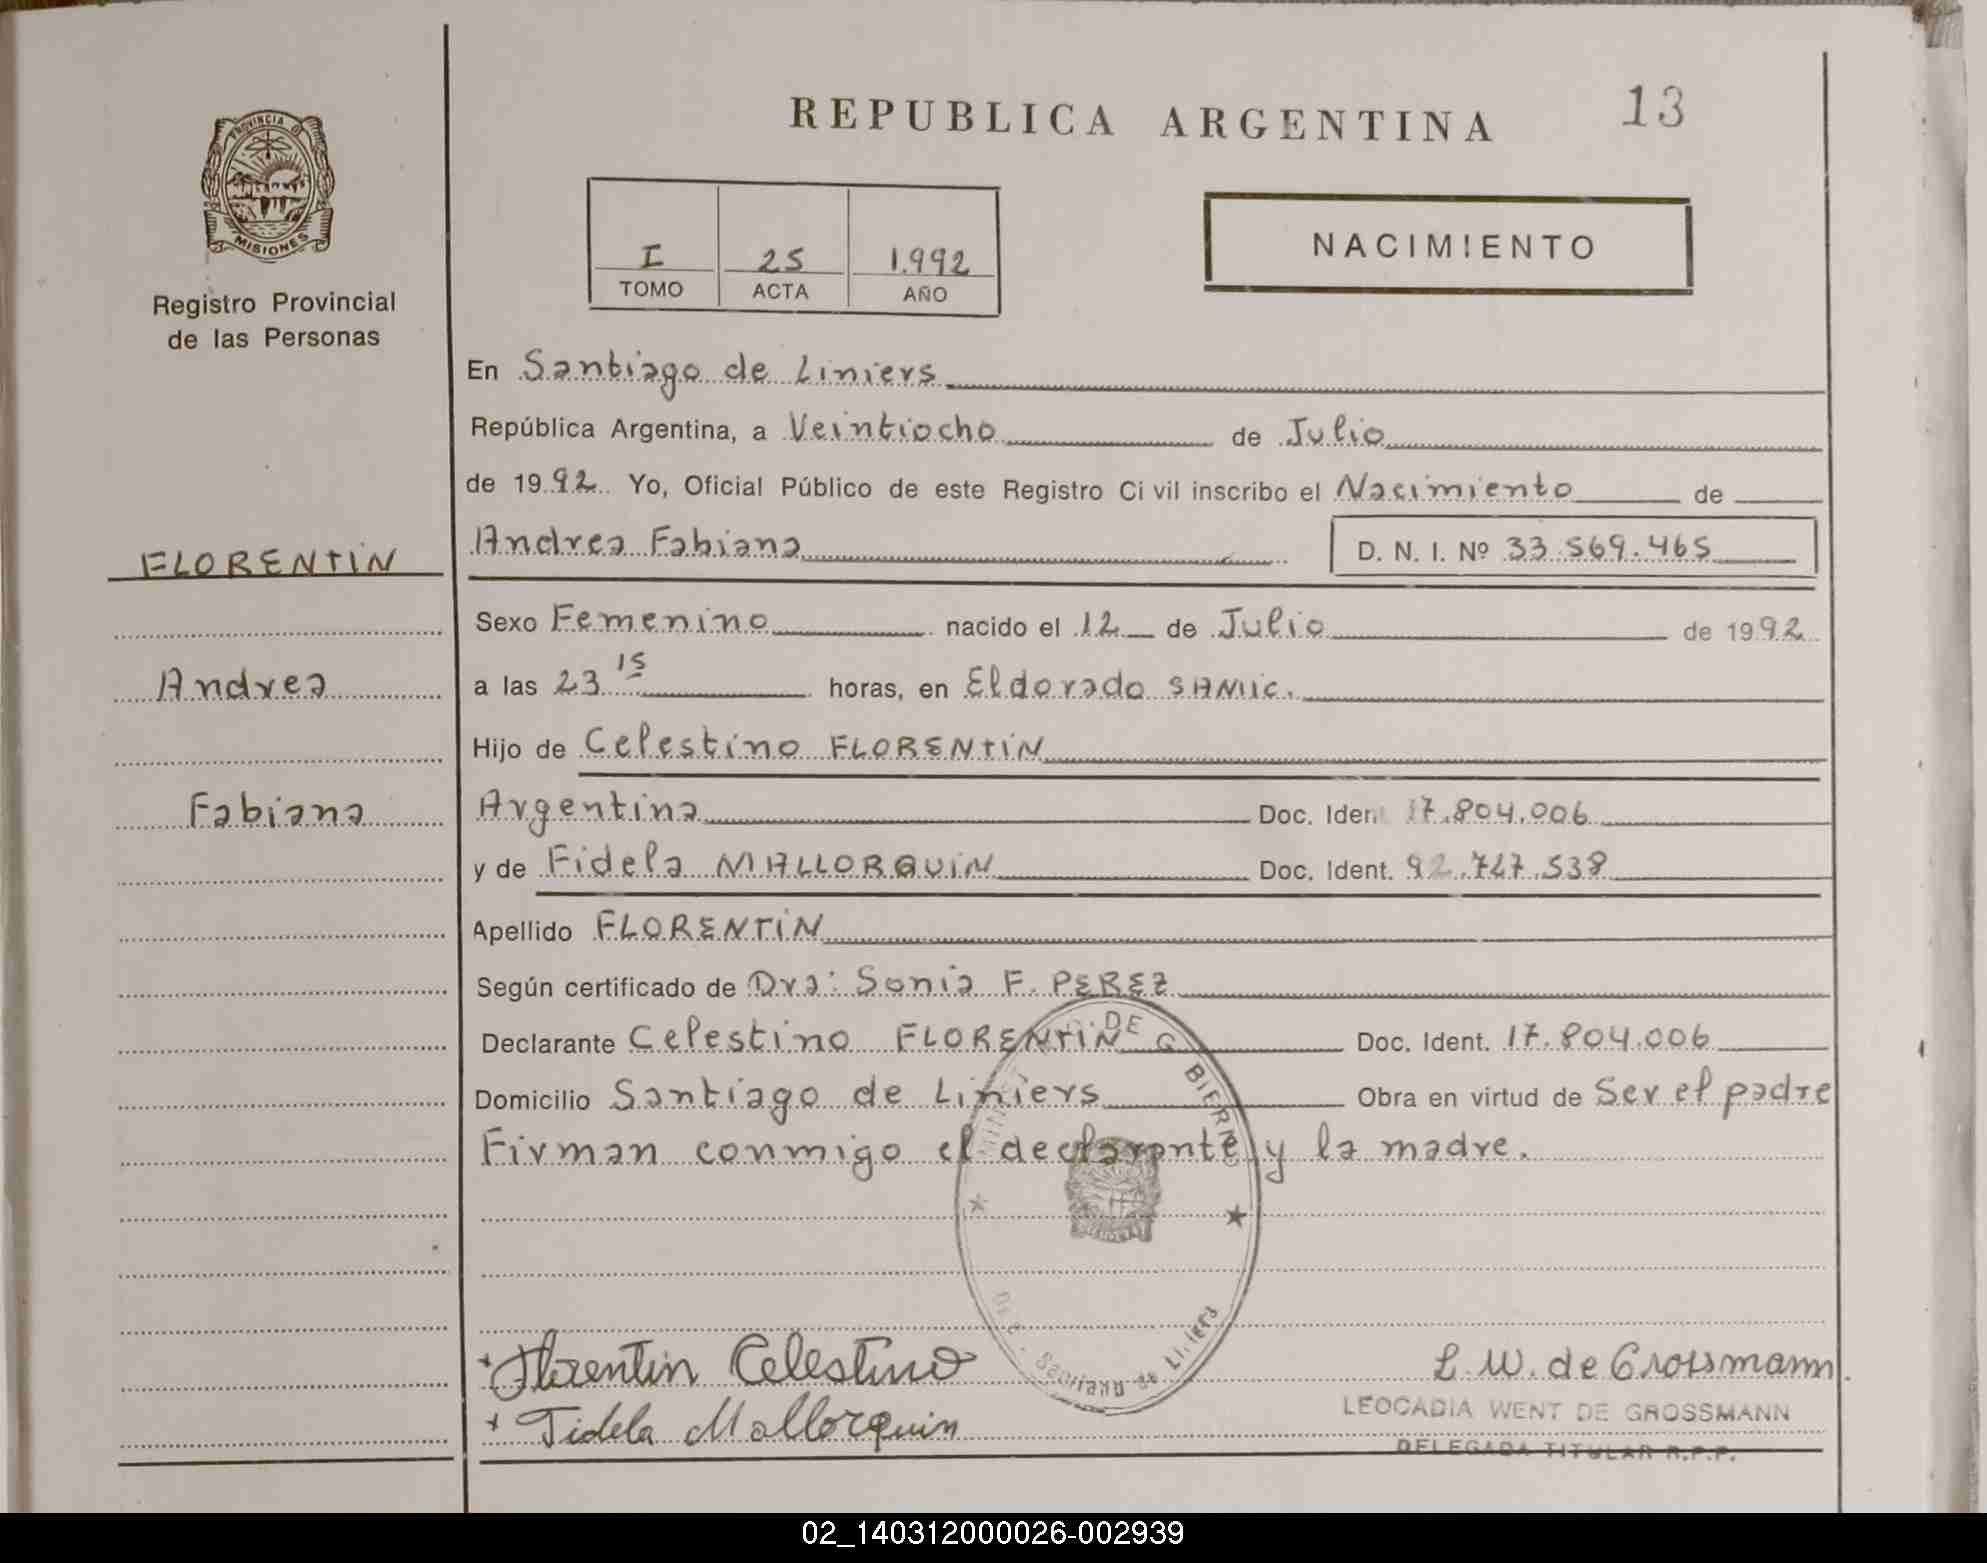 REPUBLICA ARGENTINA
13
PROVINCIA D
MISIONES
Registro Provincial
de las Personas
I 25 1.992
TOMO ACTA AÑO
NACIMIENTO
En Santiago de Liniers
República Argentina, a Veintiocho de Julio
de 1992. Yo, Oficial Público de este Registro Civil inscribo el Nacimiento de
FLORENTÍN
Andrea Fabiana D. N. I. Nº 33.569.465
Sexo Femenino nacido el 12 de Julio de 1992
Andrea
a las 23 15 horas, en Eldorado SAMIC.
Hijo de Celestino FLORENTÍN
Fabiana
Argentina Doc. Iden 17.804.006
y de Fidela MALLORQUÍN Doc. Ident. 92.747.538
Apellido FLORENTÍN
Según certificado de Dra: Sonia F. PEREZ
Declarante Celestino FLORENTÍN Doc. Ident. 17.804.006
Domicilio Santiago de Liniers Obra en virtud de Ser el padre
Firman conmigo el declarante y la madre.
DE G BIERN
Santiago de Liniers
Florentin Celestino
Fidela Mallorquin
L. W. de Grossmann
LEOCADIA WENT DE GROSSMANN
DELEGADA TITULAR R.P.P.
02_140312000026-002939